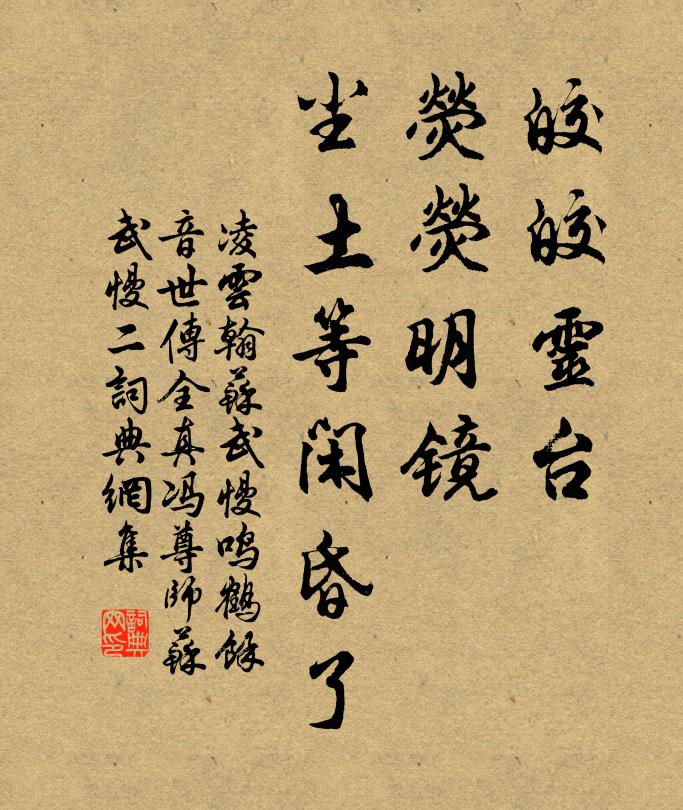 皎皎靈台
熒熒明镜
尘土等閑昏了
凌雲翰蘇武慢鸣鶴餘
音世傳全真冯尊師蘇
武慢二詞典網集
詞典网印